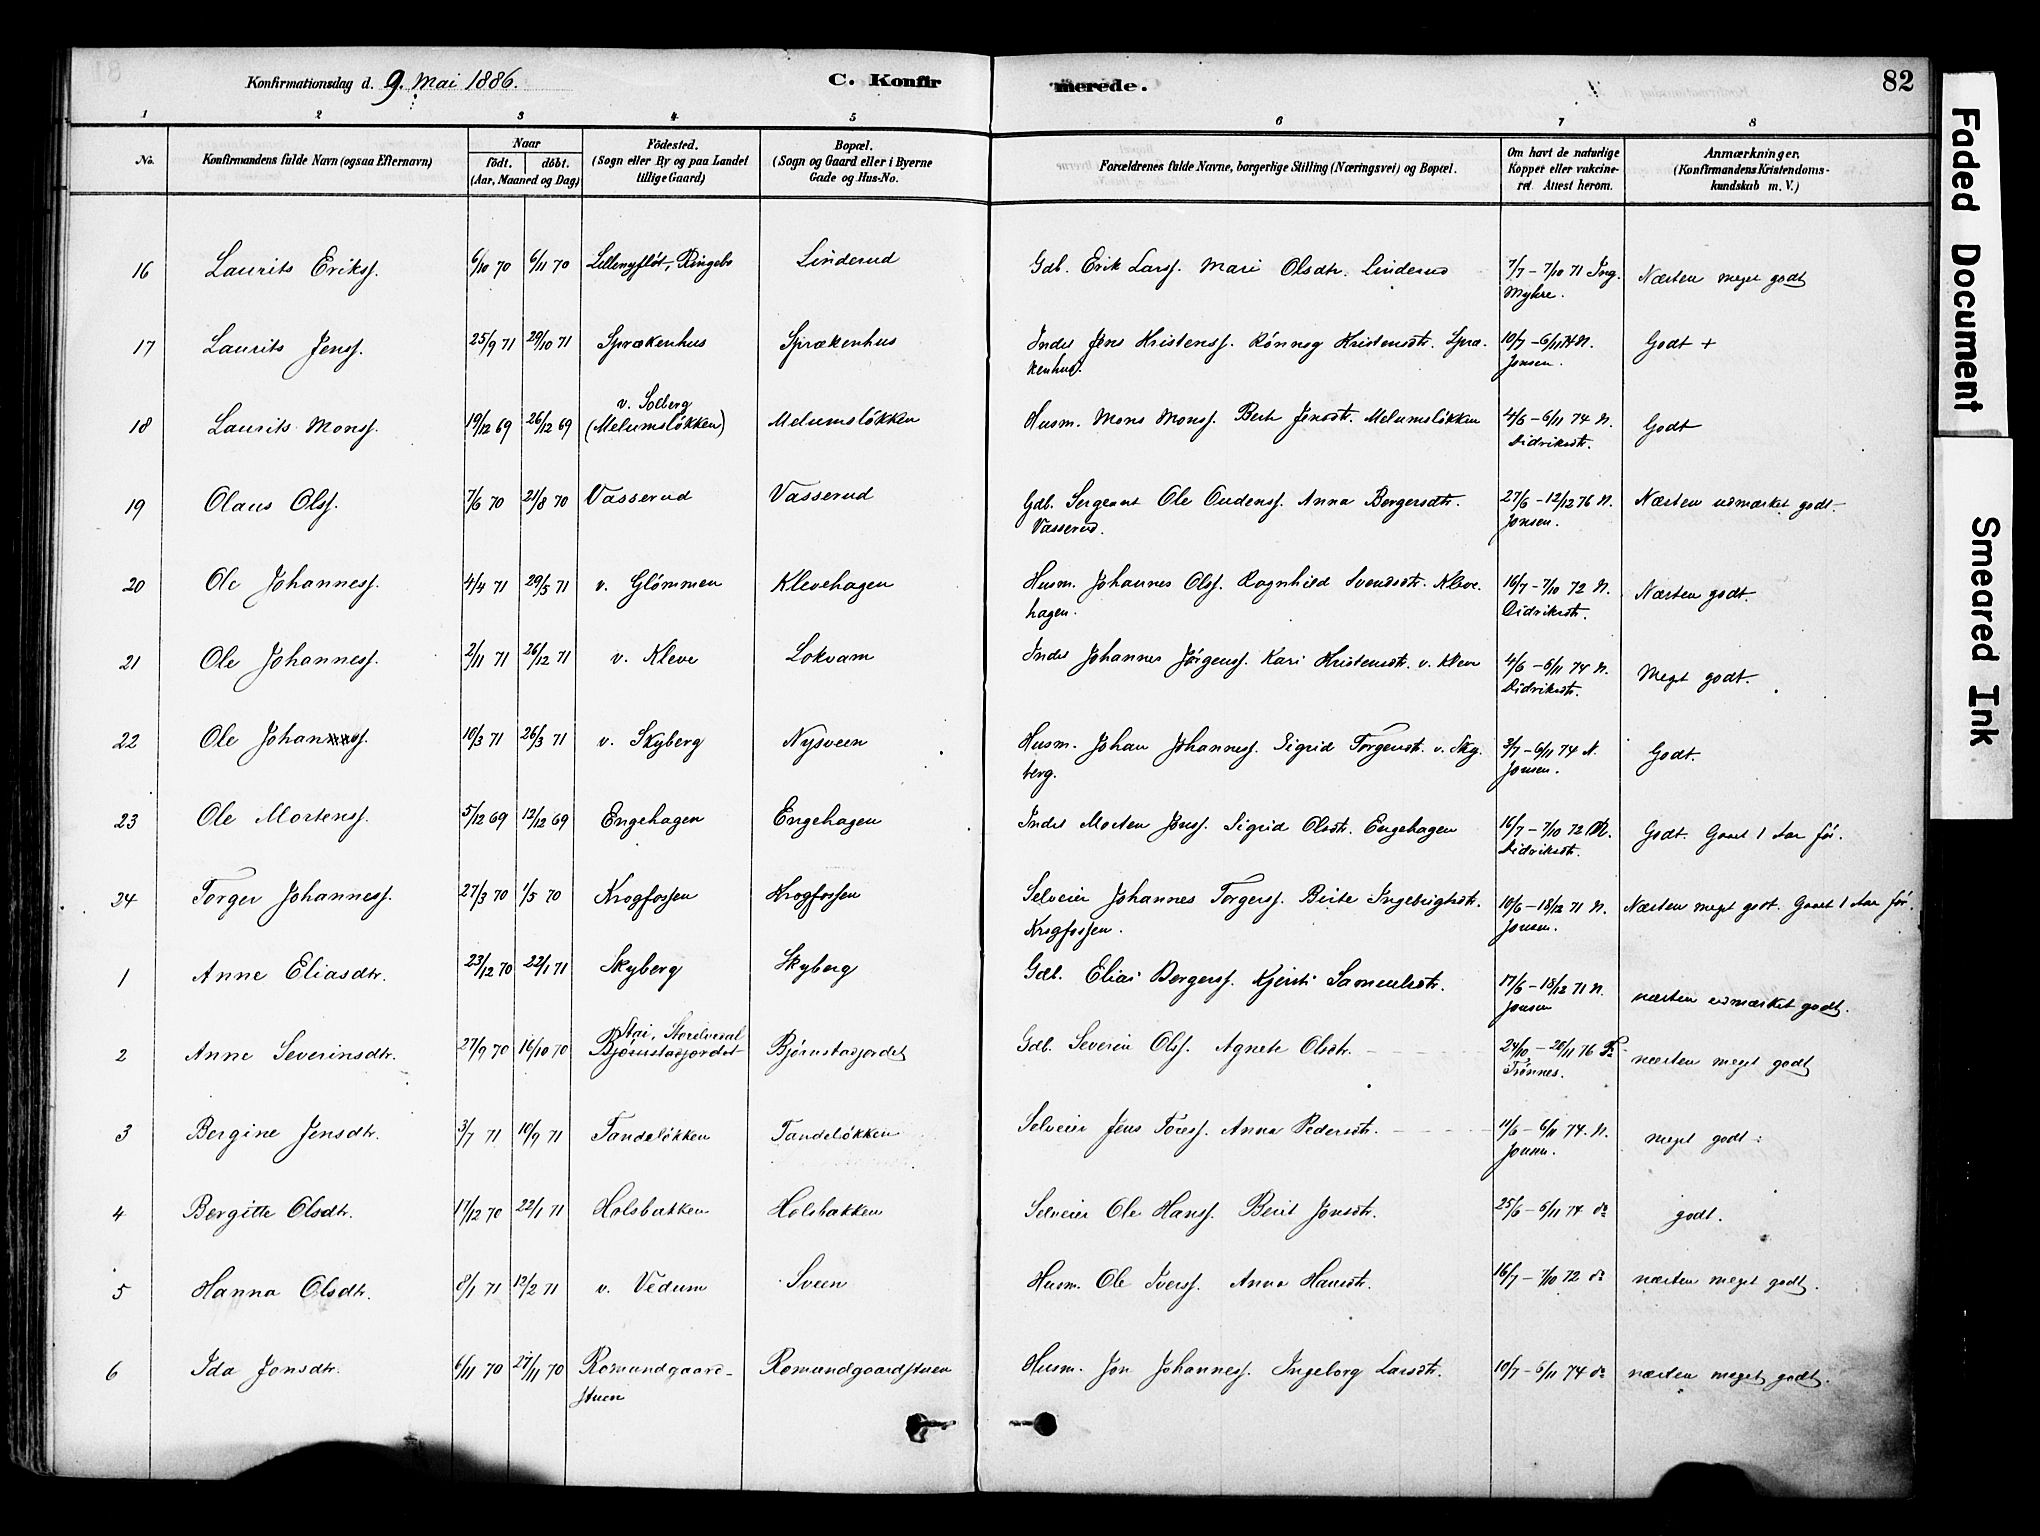 Konfirmationsdag d. 9. Mai 1886.
C. Konfirmerede.
82
1 2 3 4 5 6 7 8
No.
Konfirmandens fulde Navn (ogsaa Efternavn)
Naar
födt. döbt.
(Aar, Maaned og Dag)
Födested.
(Sogn eller By og paa Landet
tillige Gaard)
Bopæl.
(Sogn og Gaard eller i Byerne
Gade og Hus-No.
Forældrenes fulde Navne, borgerlige Stilling (Næringsvei) og Bopæl.
Om havt de naturlige
Kopper eller vakcine-
ret. Attest herom.
Anmærkninger.
(Konfirmandens Kristendoms-
kundskab m. V.)
16 Laurits Erikss. 6/10 70 6/11 70 Lillenyflöt, Ringebo Linderud Gdb. Erik Larss. Mari Olsdtr. Linderud 7/7 – 7/10 71 Ing. Næsten meget godt
Myhre.
17 Laurits Jenss. 25/9 71 29/10 71 Sprækenhus Sprækenhus Inds Jens Kristenss. Rönnog Kristensdtr. Spræ- 10/7 – 6/11 74 N. Godt +
kenhus. Jonsen.
v. Solberg
18 Laurits Monss. 19/12 69 26/12 69 (Melumslökken) Melumslökken Husm. Mons Monss. Berte Jensdtr. Melumslökken 4/6 – 6/11 74 N. Godt
Didriksstr.
19 Olaus Olss. 7/6 70 21/8 70 Vasserud Vasserud Gdb. Sergeant Ole Oudenss. Anna Bergersdtr. 27/6 – 12/12 76 N. Næsten udmærket godt
Vasserud. Jonsen.
20 Ole Johanness. 4/4 71 29/5 71 v. Glömmen Klevehagen Husm. Johannes Olss. Ragnhild Svendsdtr. Kleve- 16/7 – 7/10 72 N. Næsten godt.
hagen. Didriksstr.
21 Ole Johanness. 2/11 71 26/12 71 v. Kleve Lokvam Inds Johannes Jörgenss. Kari Kristensdtr. v. Kleve 4/6 – 6/11 74 N. Meget godt.
Didriksstr.
22 Ole Johans. 10/3 71 26/3 71 v. Skyberg Nysveen Husm. Johan Johanness. Sigrid Torgersdtr. v. Sky- 3/7 – 6/11 74 N. Godt.
berg. Jonsen.
23 Ole Mortenss. 5/12 69 12/12 69 Engehagen Engehagen Inds Morten Jonss. Sigrid Olsdtr. Engehagen 16/7 – 7/10 72 N. Godt. Gaaet 1 Aar för.
Didriksstr.
24 Torger Johanness. 27/3 70 1/5 70 Krogfossen Krogfossen Selveier Johannes Torgerss. Berte Ingebrigtsdtr. 10/6 – 18/12 71 N. Næsten meget godt. Gaaet 1 Aar för.
Krogfossen. Jonsen.
1 Anne Eliasdtr. 23/12 70 22/1 71 Skyberg Skyberg Gdb. Elias Bergerss. Kjersti Samuelsdtr. 17/6 – 18/12 71 N. næsten udmærket godt.
Jonsen
Stai, Storelvedal
2 Anne Severinsdtr. 27/9 70 16/10 70 Björnstadjordet Björnstadjordet Gdb. Severin Olss. Agnete Olsdtr. 24/10 – 26/11 76 næsten meget godt
Trönnes.
3 Bergine Jensdtr. 3/7 71 10/9 71 Tandelökken Tandelökken Selveier Jens Toress. Anna Pedersdtr. 11/6 – 6/11 74. N. meget godt
Jonsen.
4 Bergitte Olsdtr. 17/12 70 22/1 71 Holsbakken Holsbakken Selveier Ole Hanss. Berit Jonsdtr. 25/6 – 6/11 74 do godt.
5 Hanna Olsdtr. 8/1 71 12/2 71 v. Vedum Sveen Husm. Ole Iverss. Anna Hansdtr. 16/7 – 7/10 72 do næsten meget godt.
6 Ida Jonsdtr. 6/11 70 27/11 70 Romundgaard- Romundgaardstuen Husm. Jon Johanness. Ingeborg Larsdtr. 10/7 – 6/11 74 do næsten meget godt.
stuen
Faded Document
Smeared Ink